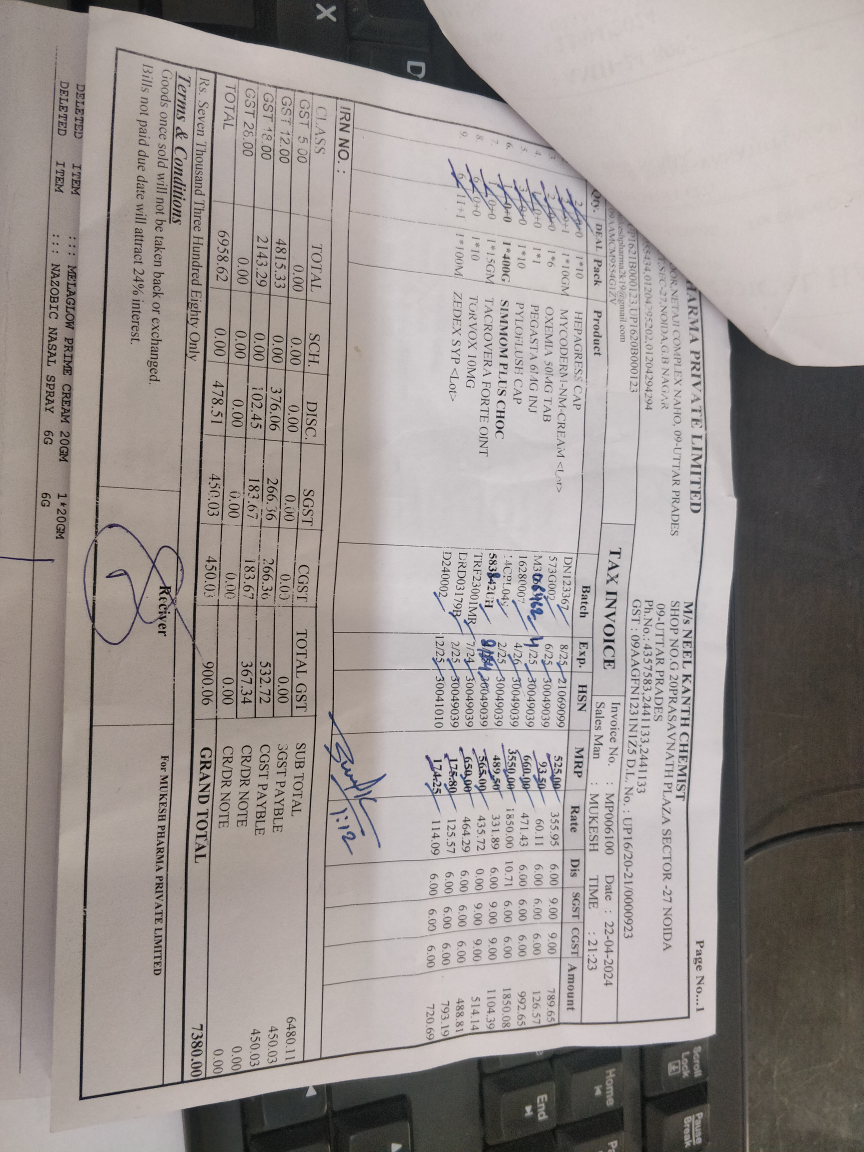 HARMA PRIVATE LIMITED
OR,NETAJI COMPLEX NAHO, 09-UTTAR PRADES
SEC-27,NOIDA,G.B NAGAR
95434,01204295202,01204294294
UP1621B000123,UP1620B000123
eshpharma2k19@gmail.com
09AAMCM9554G1ZV
Page No...1
M/s NEEL KANTH CHEMIST
SHOP NO.G 20PRASAVNATH PLAZA SECTOR -27 NOIDA
09-UTTAR PRADES
Ph.No.: 4357583,2441133,2441133
GST : 09AAGFN1231N1Z5 D.L. No.: UP16/20-21/0000923
TAX INVOICE
Invoice No. : MP006100 Date : 22-04-2024
Sales Man : MUKESH TIME : 21:23
Qty. DEAL Pack Product Batch Exp. HSN MRP Rate Dis SGST CGST Amount
1*10 HEPAGRESS CAP DN123367 8/25 21069099 525.00 355.95 6.00 9.00 9.00 789.65
1*10GM MYCODERM-NM-CREAM <Lot> 573G002 6/25 30049039 93.50 60.11 6.00 6.00 6.00 126.57
1*6 OXEMIA 50MG TAB 4/25 30049039 660.00 471.43 6.00 6.00 6.00 992.65
4. 1*1 PEGASTA 6MG INJ 1628000 4/26 30049039 3550.00 1850.00 10.71 6.00 6.00 1850.08
5. 1*10 PYLOFLUSH CAP 2/25 30049039 489.50 331.89 6.00 9.00 9.00 1104.39
6. 1*400G SIMMOM PLUS CHOC 30049039 565.00 435.72 0.00 9.00 9.00 514.14
7. 1*15GM TACROVERA FORTE OINT TRF23001MR 7/24 30049039 650.00 464.29 6.00 6.00 6.00 488.81
8. 1*10 TORVOX 10MG DRD03179B 2/25 30049039 175.80 125.57 6.00 6.00 6.00 793.19
9. 6 11+1 1*100M ZEDEX SYP <Lot> D240092 12/25 30041010 174.25 114.09 6.00 6.00 6.00 720.69
1:12
IRN NO. :
CLASS TOTAL SCH. DISC. SGST CGST TOTAL GST
GST 5.00 0.00 0.00 0.00 0.00 0.00 0.00
GST 12.00 4815.33 0.00 376.06 266.36 266.36 532.72
GST 18.00 2143.29 0.00 102.45 183.67 183.67 367.34
GST 28.00 0.00 0.00 0.00 0.00 0.00 0.00
TOTAL 6958.62 0.00 478.51 450.03 450.03 900.06
SUB TOTAL 6480.11
SGST PAYBLE 450.03
CGST PAYBLE 450.03
CR/DR NOTE 0.00
CR/DR NOTE 0.00
Rs. Seven Thousand Three Hundred Eighty Only
GRAND TOTAL 7380.00
Terms & Conditions
Goods once sold will not be taken back or exchanged.
Bills not paid due date will attract 24% interest.
Reciver
For MUKESH PHARMA PRIVATE LIMITED
DELETED ITEM ::: MELAGLOW PRIME CREAM 20GM 1*20GM
DELETED ITEM ::: NAZOBIC NASAL SPRAY 6G 6G
X
D
Scroll
Lock
Pause
Break
Home
End